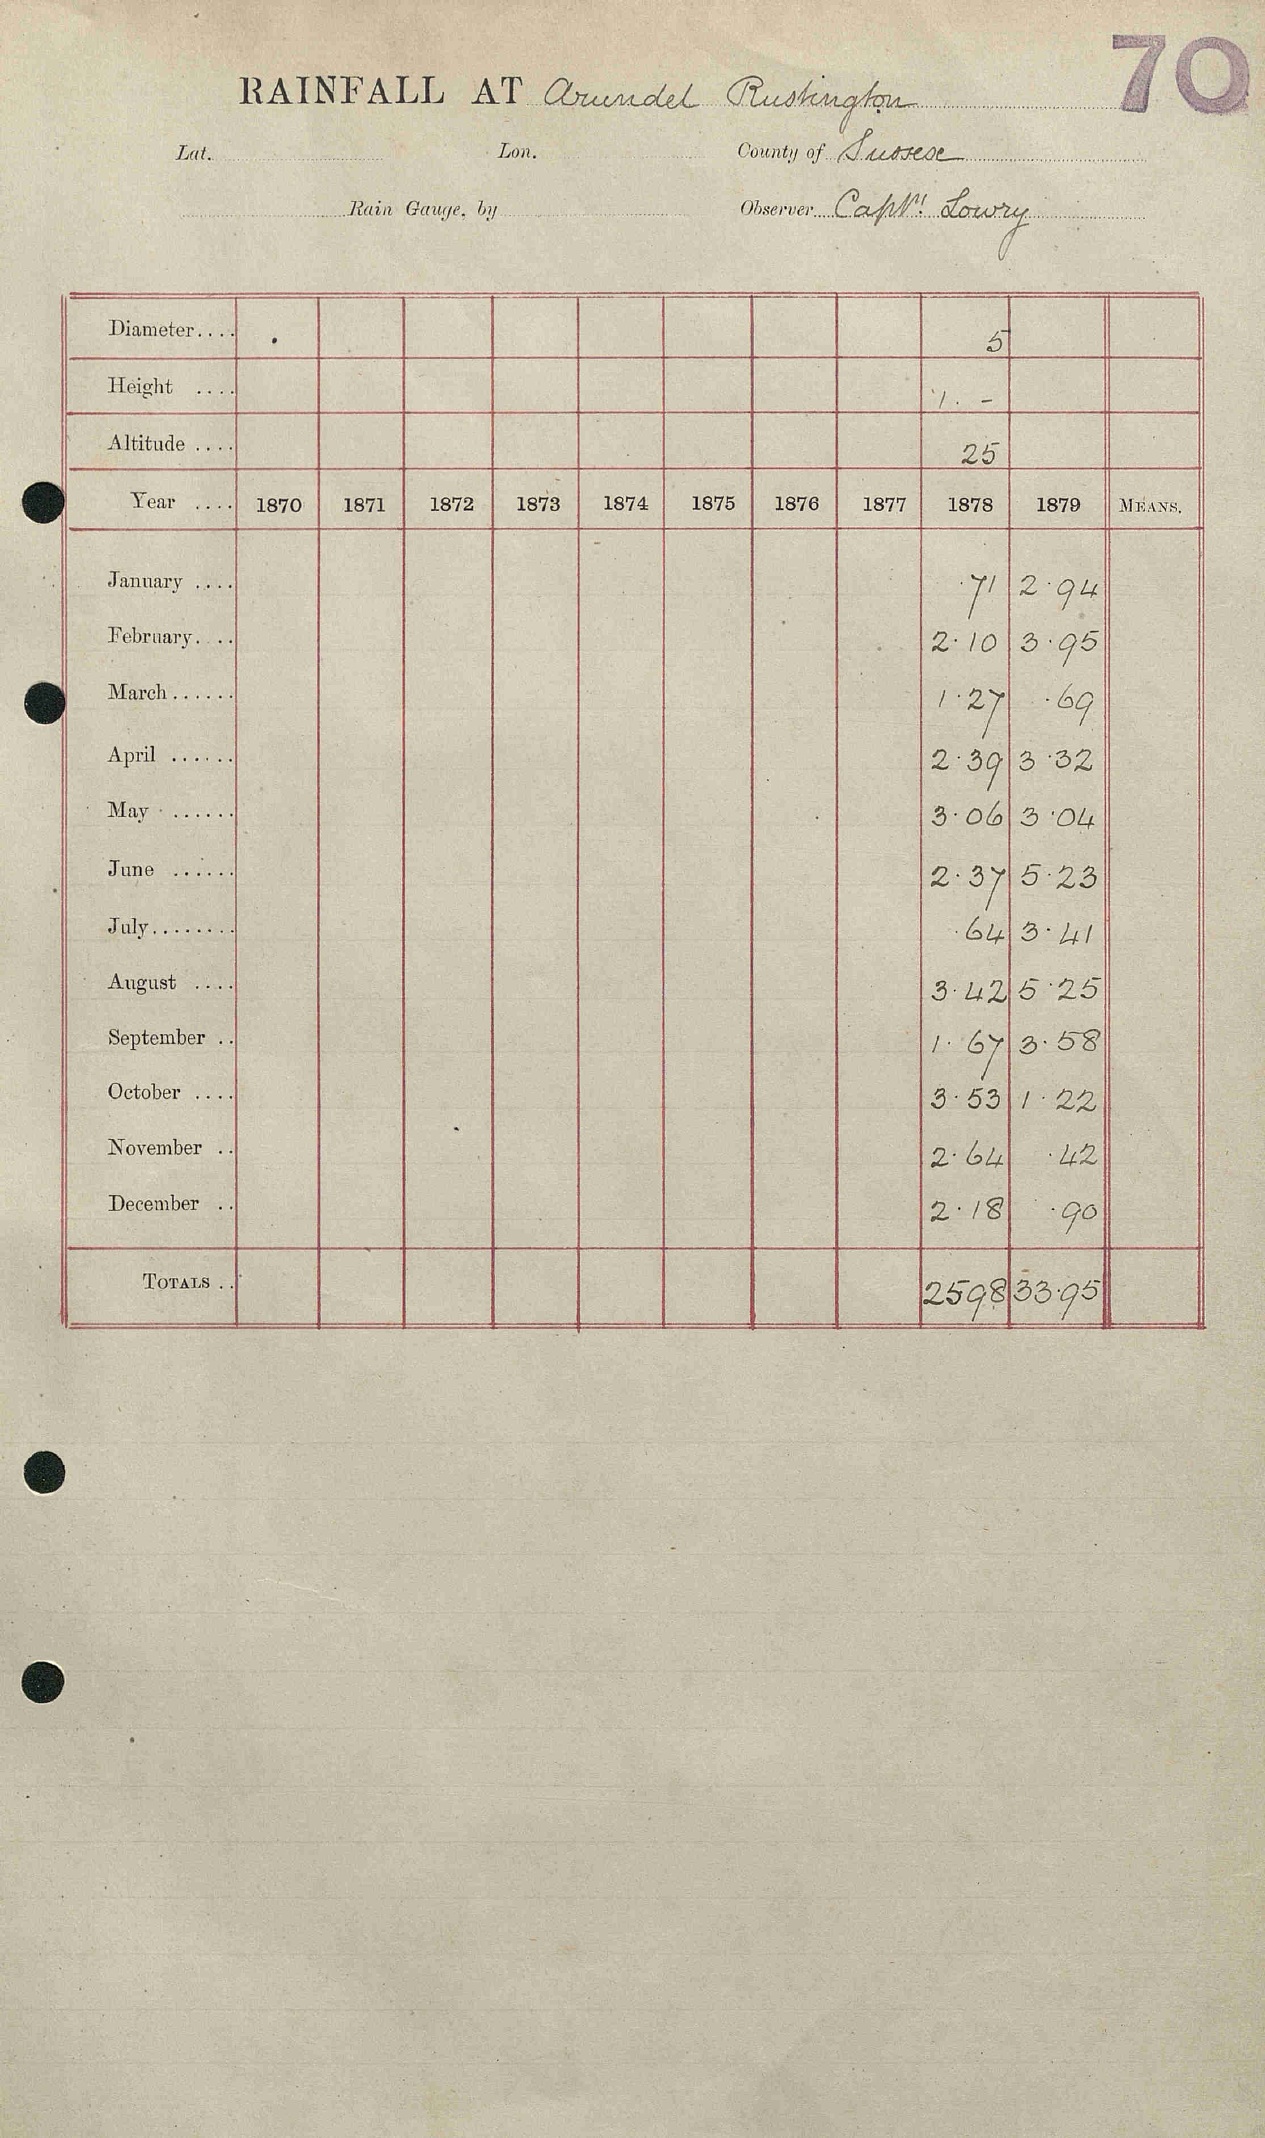 70
RAINFALL AT Arundel Rustington
Lat. Lon. County of Sussex
Rain Gauge, by Observer Captn. Lowry
Diameter.... 5
Height .... 1. -
Altitude .... 25
Year .... 1870 1871 1872 1873 1874 1875 1876 1877 1878 1879 MEANS.
January .... ·71 2·94
February.... 2·10 3·95
March...... 1·27 ·69
April ...... 2·39 3·32
May ...... 3·06 3·04
June ...... 2·37 5·23
July........ ·64 3·41
August .... 3·42 5·25
September .. 1·67 3·58
October .... 3·53 1·22
November .. 2·64 ·42
December .. 2·18 ·90
TOTALS .. 25·98 33·95